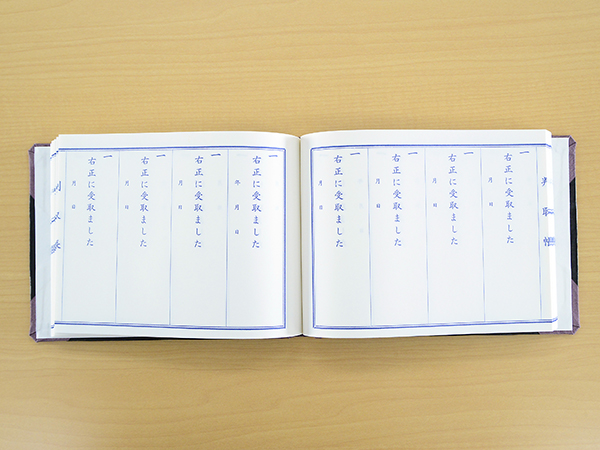 判取帳
一
右正に受取ました
月 日
一
右正に受取ました
月 日
一
右正に受取ました
月 日
一
右正に受取ました
月 日
一
右正に受取ました
年 月 日
一
右正に受取ました
月 日
一
右正に受取ました
月 日
一
右正に受取ました
月 日